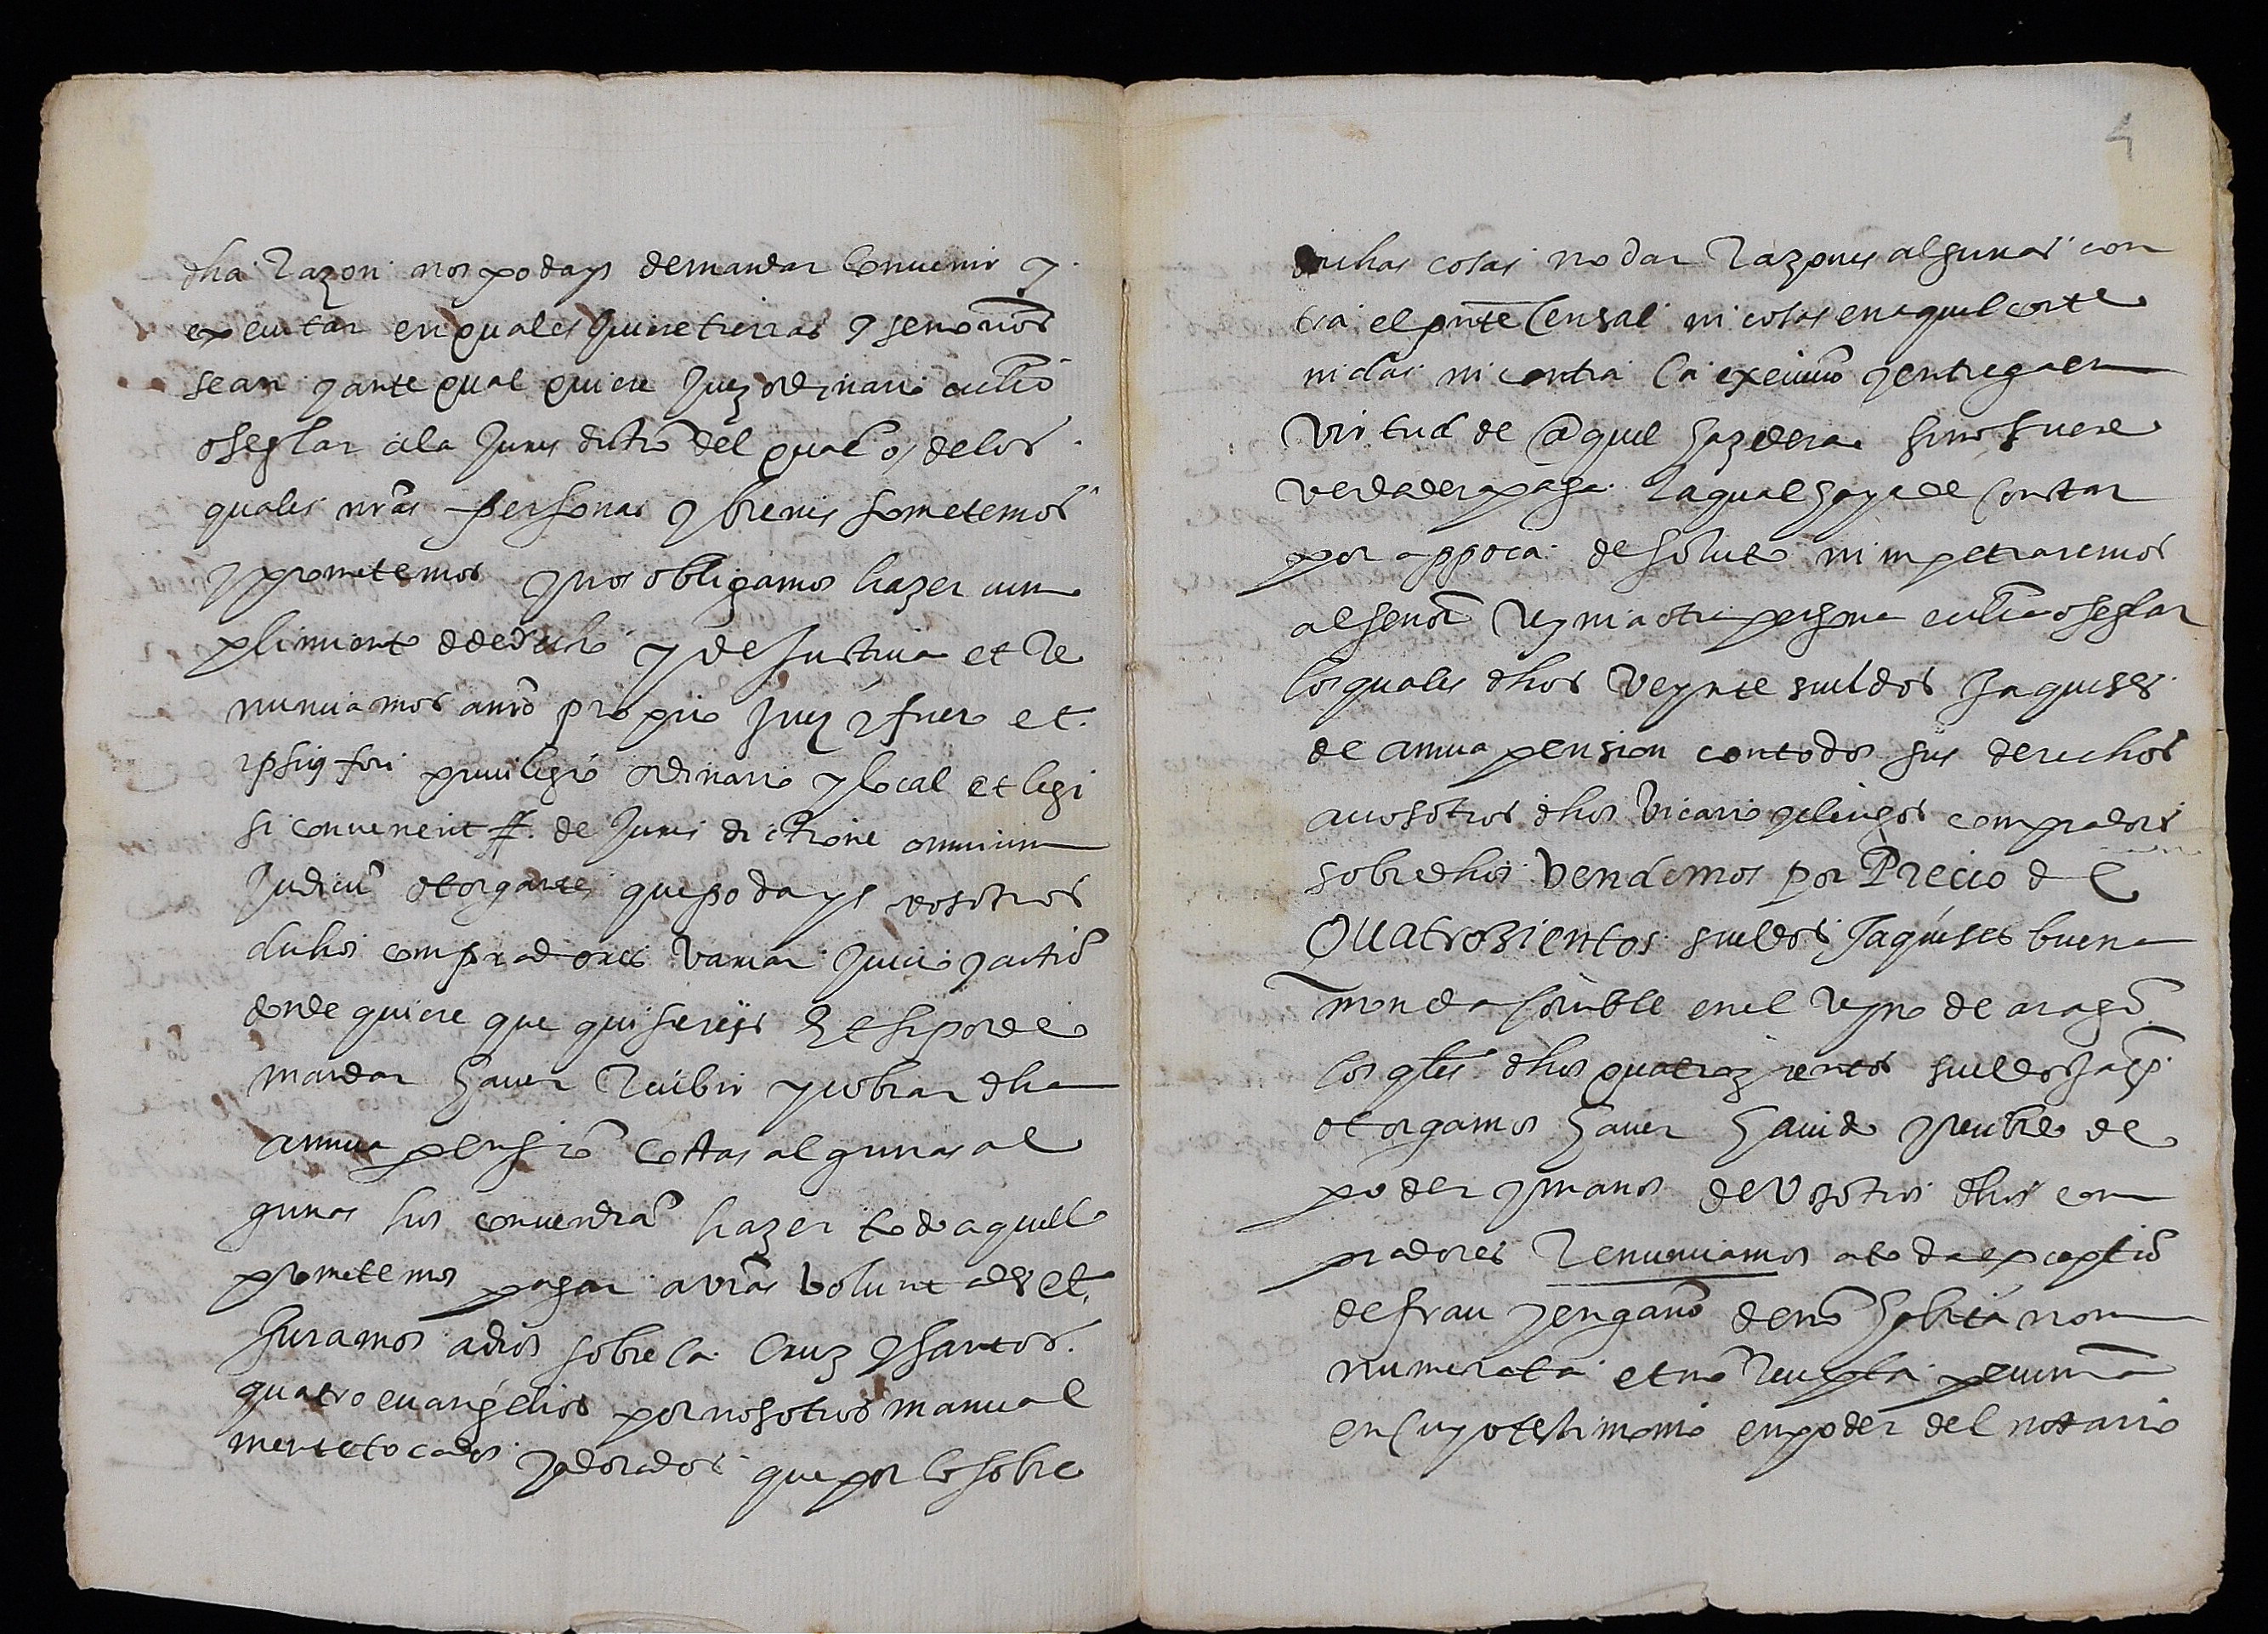 dha Razon nos podays demandar Convenir y
executar en quales quiere tierras y senorios
sean y ante qual quiere Juez ordinario ecclico
o seglar a la Juris dictio del qual o de los
quales nras personas y bienes sometemos
y prometemos y nos obligamos hazer cum
plimiento de derecho y de Justicia et re
nunciamos a nro propio Juez y fuero et
ipsius fori privilegio ordinario y local et legi
si convenerit ff. de Juris dictione omnium
Judicu otorgantes que podays vosotros
dichos compradores variar Juicio y actio
donde quiere que quisiereis Et si por de
mandar haver Recibir y cobrar dha
annua pensio costas algunas al
gunas hos convendra hazer todo aquello
prometemos pagar a vras voluntades et
Juramos a dios sobre la Cruz y santos
quatro evangelios por nosotros manual
mente tocados y adorados que por lo sobre
4
dichas cosas no dar Razones algunas con
tra el pnte Censal ni cosas en aquel conte
nidas ni contra la execucio y entrega en
virtud de aquel hazedera sino fuere
verdadera paga la qual haya de Constar
por appoca de soluto ni inpetraremos
al senor Rey ni a otra persona ecclica o seglar
los quales dhos veynte sueldos Jaqueses
de annua pension con todos sus derechos
a vosotros dhos vicario y clerigos compradores
sobredhos vendemos por Precio de
Quatrozientos sueldos Jaqueses buena
moneda corrible en el reyno de arago
los qles dhos quatrozientos sueldos Jaqs
otorgamos haver havido y recibido de
poder y manos de vosotros dhos com
pradores Renunciamos a toda exceptio
de frau y engano de no habita non
numerata et no recepta pecunia
en cuyo testimonio en poder del notario